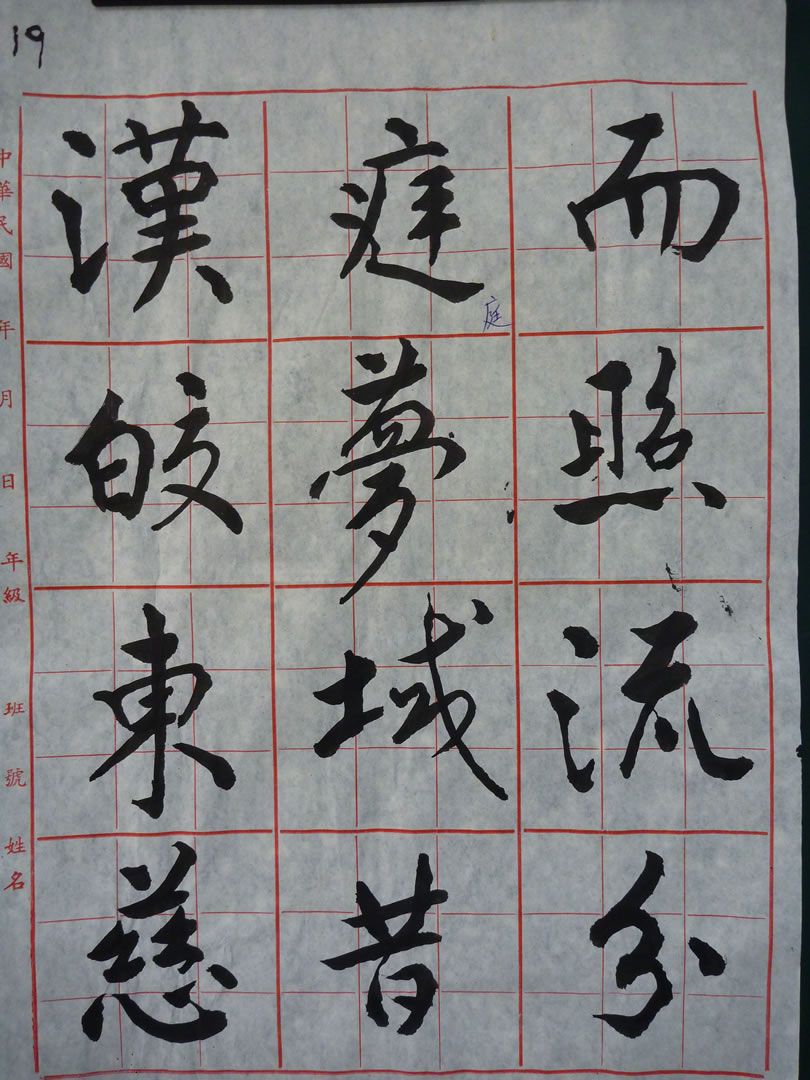 19
漢庭而
庭
皎夢照
東域流
慈昔分
中華民國 年 月 日 年級 班 號 姓名